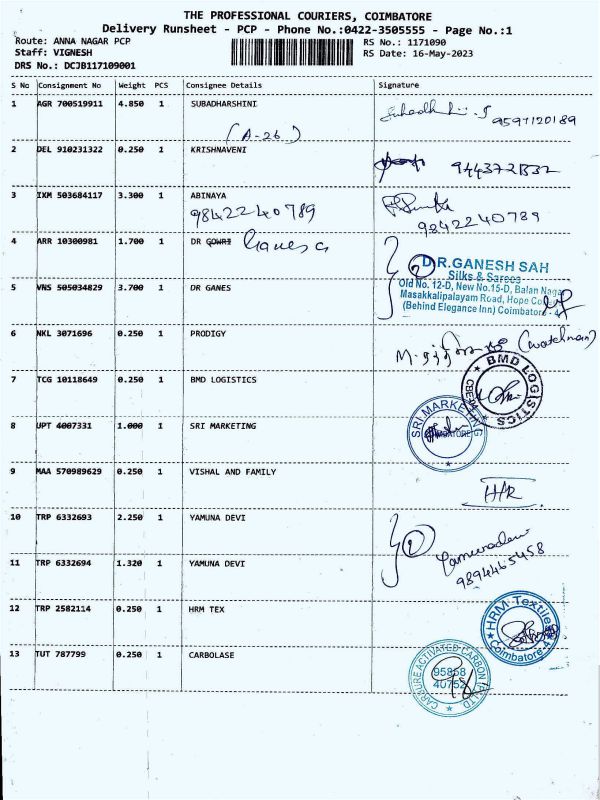 THE PROFESSIONAL COURIERS, COIMBATORE
Delivery Runsheet - PCP - Phone No.:0422-3505555 - Page No.:1
Route: ANNA NAGAR PCP
RS No.: 1171090
Staff: VIGNESH
RS Date: 16-May-2023
DRS No.: DCJB117109001
S No Consignment No Weight PCS Consignee Details Signature
1 AGR 700519911 4.850 1 SUBADHARSHINI
9597120189
(A-26)
2 DEL 910231322 0.250 1 KRISHNAVENI
3 IXM 503684117 3.300 1 ABINAYA
9842240789
9842240789
4 ARR 10300981 1.700 1 DR GOWRI
2 DR.GANESH SAH
Silks & Sarees
Old No. 12-D, New No.15-D, Balan Nagar
Masakkalipalayam Road, Hope
(Behind Elegance Inn) Coimbatore - 4
5 VNS 505034829 3.700 1 DR GANES
6 NKL 3071696 0.250 1 PRODIGY
(watchman)
7 TCG 10118649 0.250 1 BMD LOGISTICS
BMD LOGISTICS
8 UPT 4007331 1.000 1 SRI MARKETING
SRI MARKETING
9 MAA 570989629 0.250 1 VISHAL AND FAMILY
10 TRP 6332693 2.250 1 YAMUNA DEVI
2 Yamunadevi
9894465458
11 TRP 6332694 1.320 1 YAMUNA DEVI
12 TRP 2582114 0.250 1 HRM TEX
HRM Textiles
Coimbatore-4
13 TUT 787799 0.250 1 CARBOLASE
95858
40752